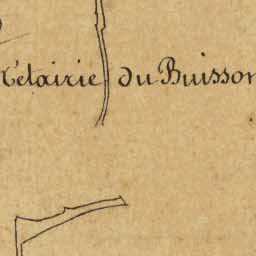 Métairie du Buisson